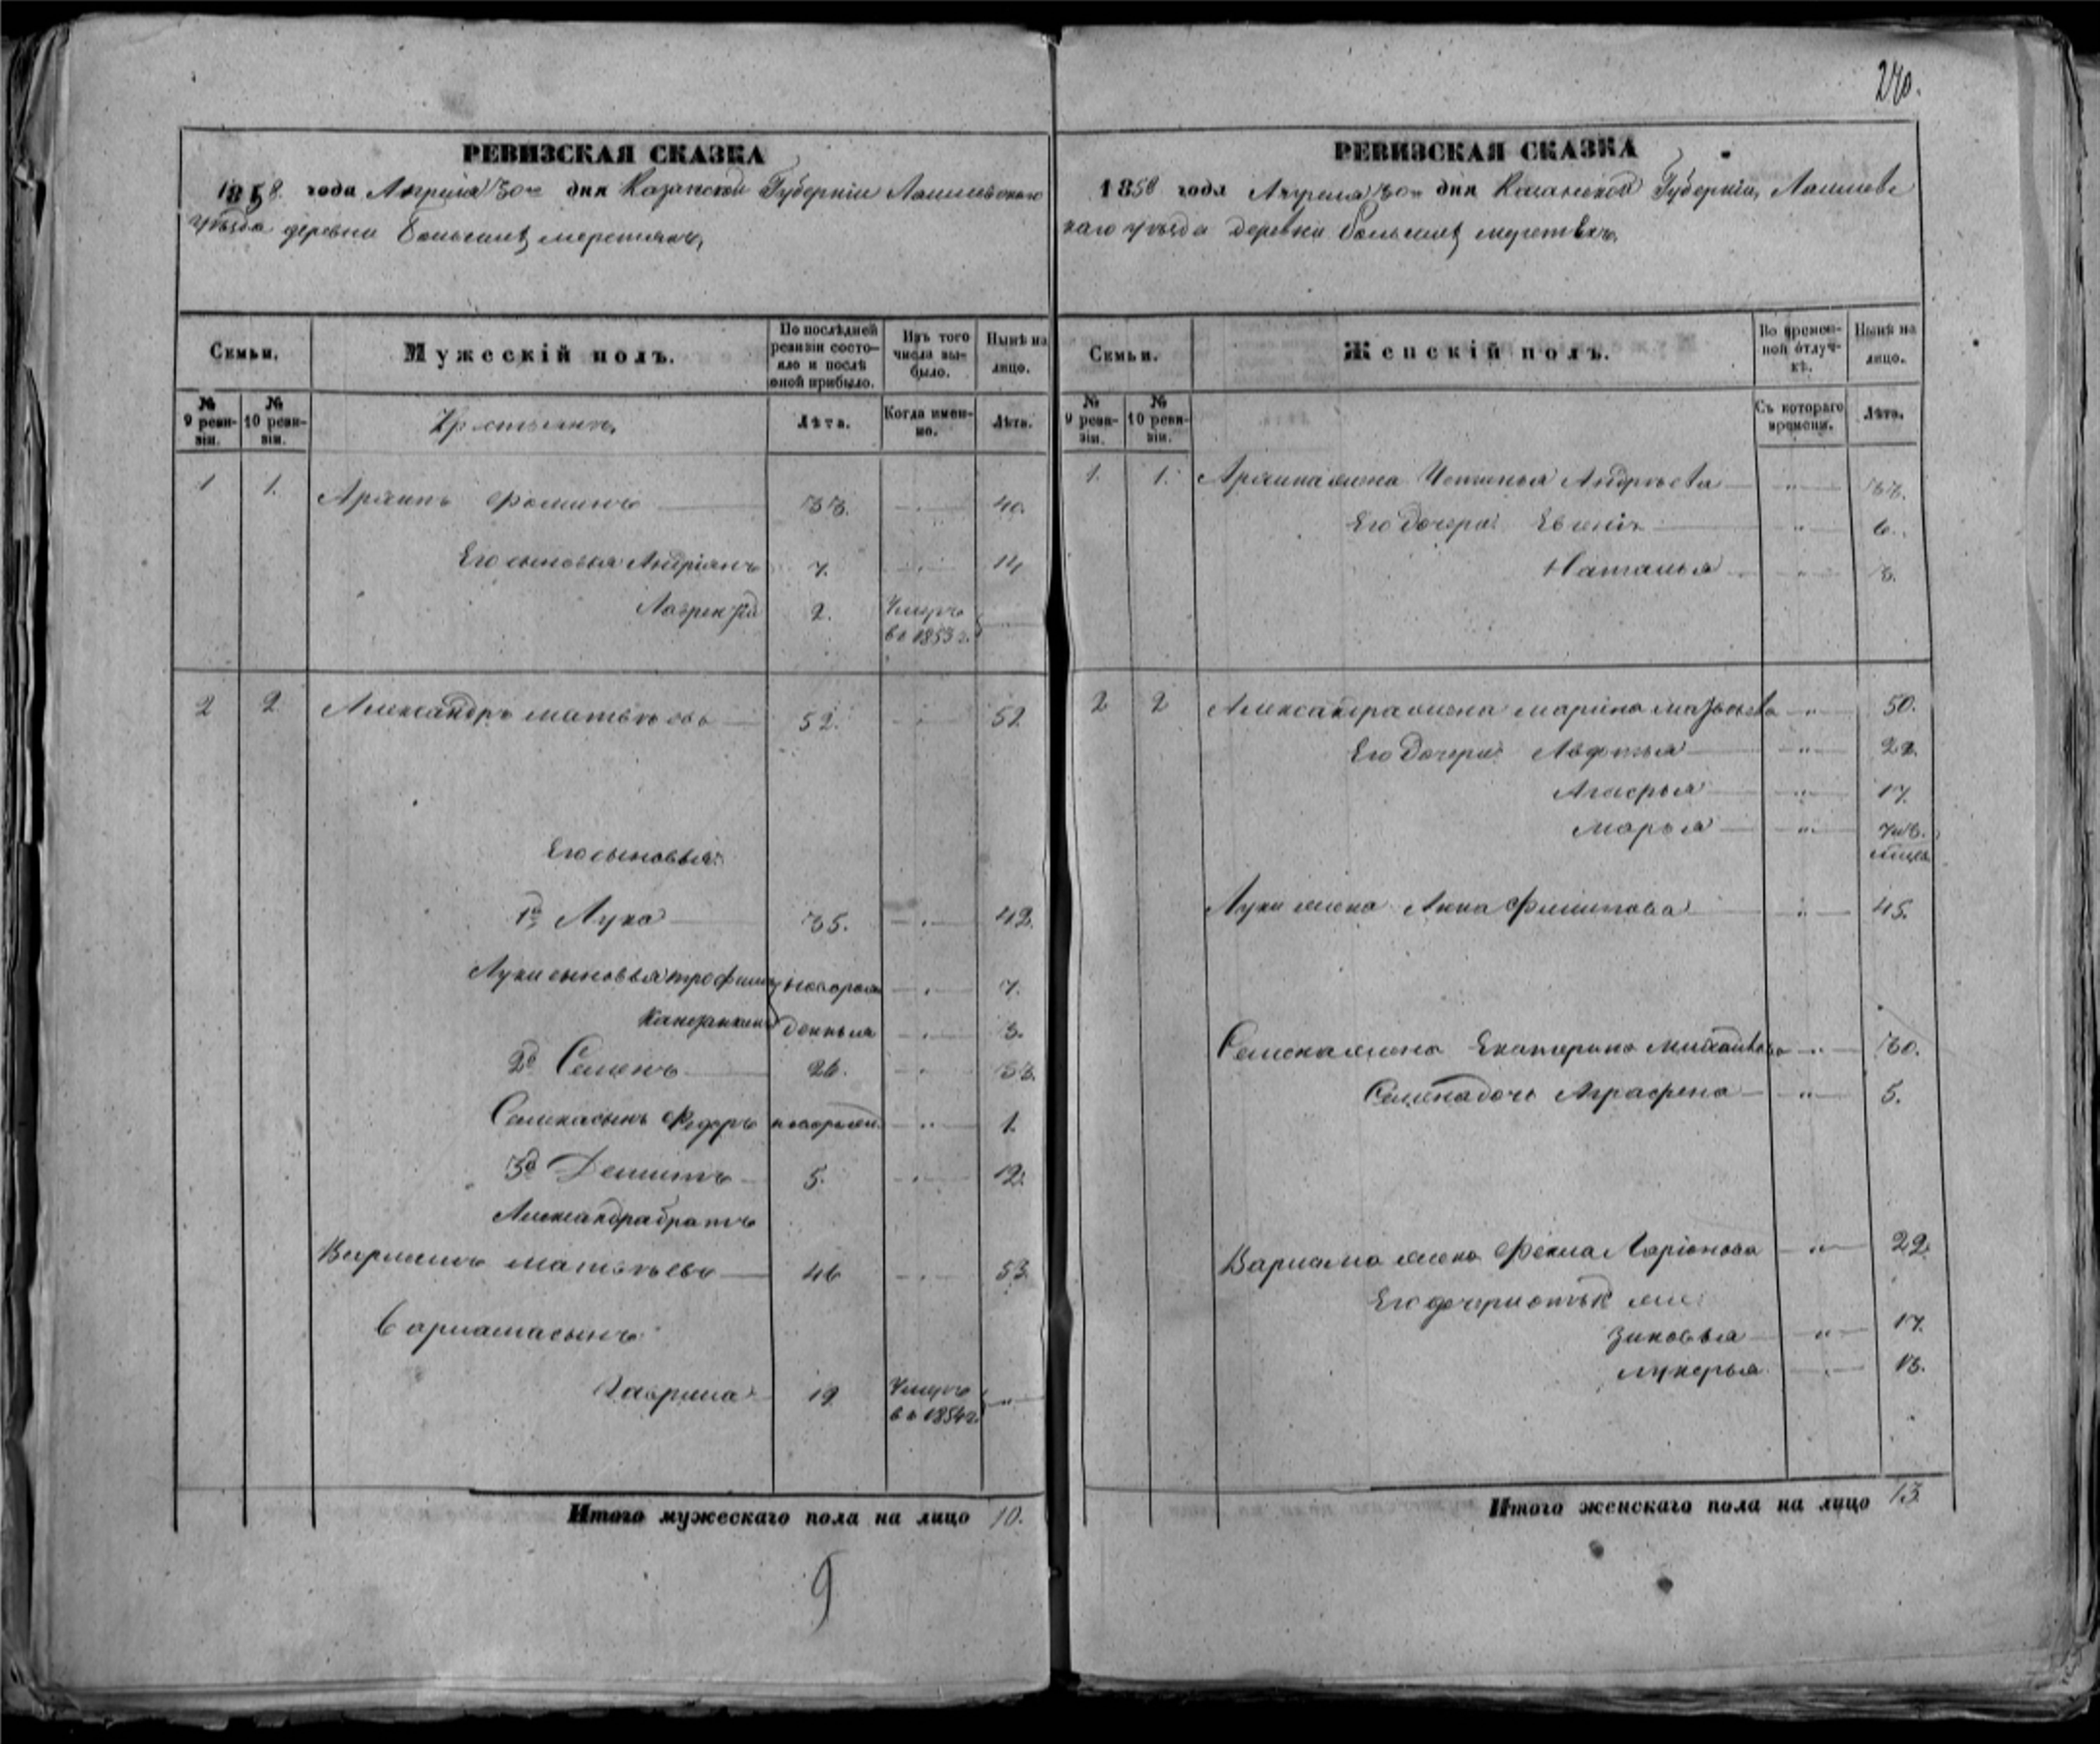 240.
РЕВИЗСКАЯ СКАЗКА
1858. года Апреля 30го дня Казанской Губерніи Лаишевскаго
уѣзда деревни большихъ
Семьи.
Мужескій полъ.
По послѣдней ревизіи состояло и послѣ оной прибыло.
Изъ того числа выбыло.
Нынѣ на лицо.
№ 9 ревизіи.
№ 10 ревизіи.
Крестьянъ
Лѣта.
Когда именно.
Лѣта.
1 1. Архипъ Фоминъ 33. 40.
Его сыновья Андріянъ 7. 14
Лаврентій 2. Умеръ въ 1853 г.
2 2 Александръ Матвѣевъ 52. 52
Его сыновья:
1й Лука 35. 42.
Луки сыновья Трофимъ новорож 7.
денныя 3.
2й Семенъ 26. 33.
Семена сынъ Федоръ новорожд. 1.
3й Демидъ 5. 12.
Александра братъ
Матвѣевъ 46 53
Варлама сынъ
Гаврила 19 Умеръ въ 1854 г.
Итого мужескаго пола на лицо 10.
9
РЕВИЗСКАЯ СКАЗКА
1858 года Апреля 30го дня Казанской Губерніи, Лаишевс
каго уѣзда деревни большихъ
Семьи.
Женскій полъ.
Во временной отлучкѣ.
Нынѣ на лицо.
№ 9 ревизіи.
№ 10 ревизіи.
Съ котораго времени.
Лѣта.
1. 1. Архипа жена Устинья Андрѣева 33.
Его дочери: 6.
Наталья 3.
2 2 Александра жена Марина 50.
Его дочери: Авдотья 22
Агафья 17.
Марья
Луки жена Анна Филипова 45.
Семена жена Екатерина Михайлова 30.
Семена дочь Аграфена 5.
Варлама жена Фекла Ларіонова 22.
Его дочери отъ 1й жены
Зиновья 17.
Лукерья 13.
Итого женскаго пола на лицо 13